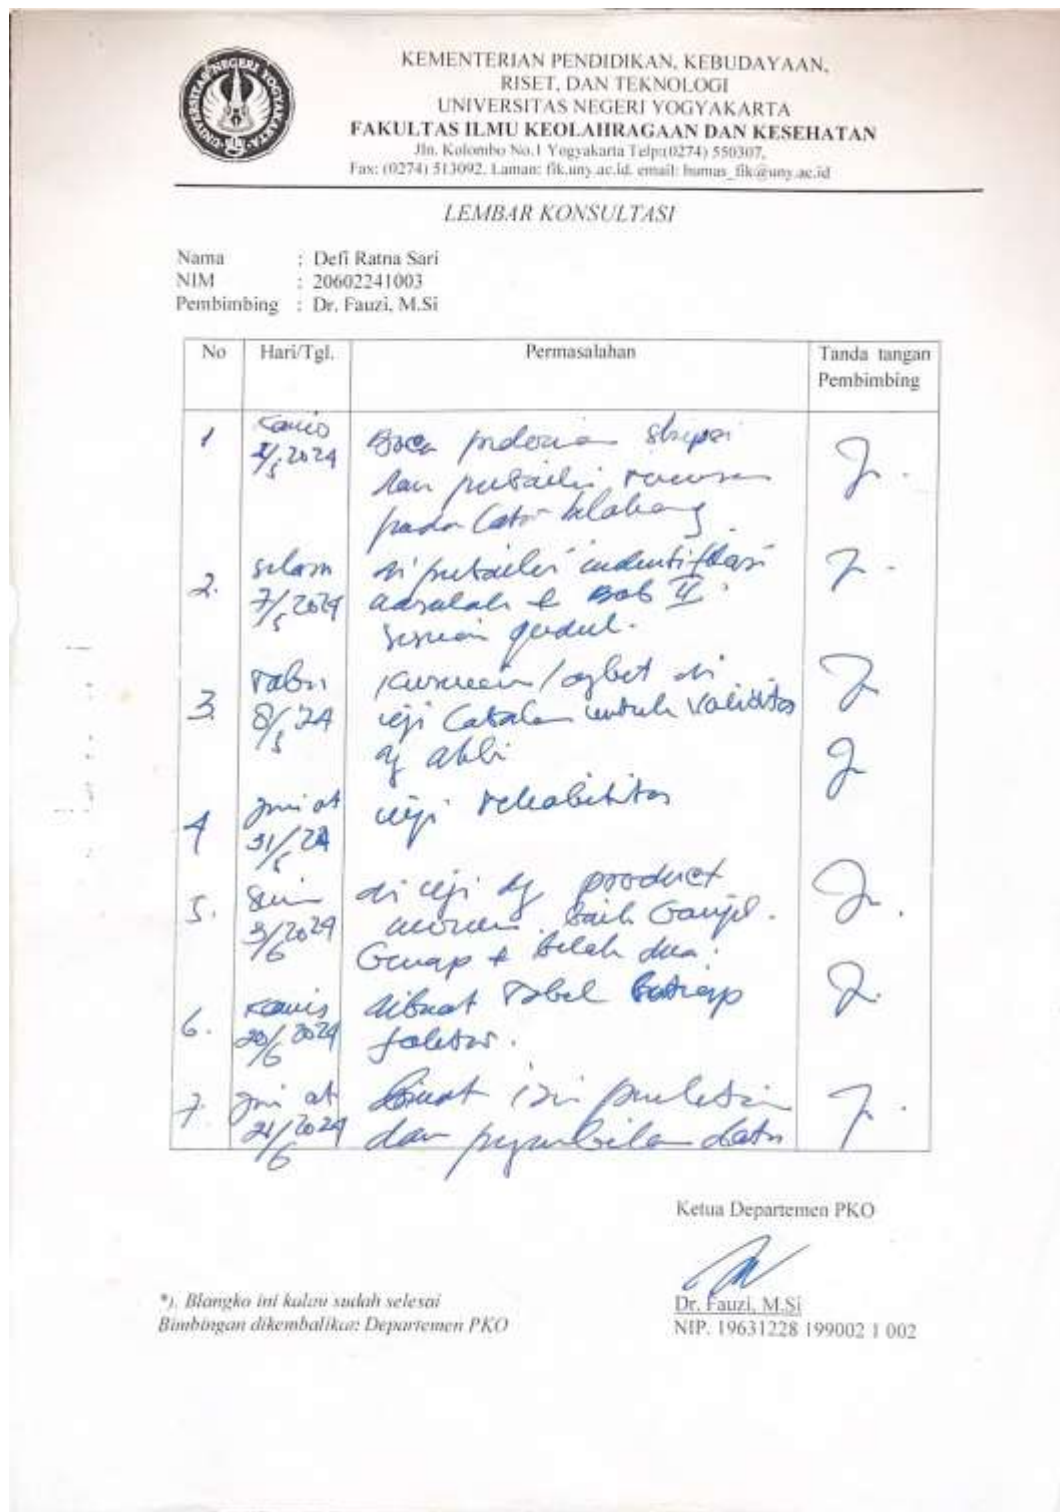 KEMENTERIAN PENDIDIKAN, KEBUDAYAAN,
RISET, DAN TEKNOLOGI
UNIVERSITAS NEGERI YOGYAKARTA
FAKULTAS ILMU KEOLAHRAGAAN DAN KESEHATAN
Jln. Kolombo No.1 Yogyakarta Telp:(0274) 550307,
Fax: (0274) 513092. Laman: fik.uny.ac.id. email: humas_fik@uny.ac.id
UNIVERSITAS NEGERI YOGYAKARTA
UNY
LEMBAR KONSULTASI
Nama : Defi Ratna Sari
NIM : 20602241003
Pembimbing : Dr. Fauzi, M.Si
No Hari/Tgl. Permasalahan Tanda tangan
Pembimbing
1 Kamis
/5 2024 Baca skripsi
dan
pada latar belakang
2. Selasa
7/5 2024 identifikasi
masalah & Bab II
sesuai judul.
3. Rabu
8/5 '24 di
uji untuk validitas
dg ahli
4 Jum'at
31/5 24 uji reliabilitas
5. Senin
3/6 2024 di uji dg product
moment Ganjil.
Genap & belah dua.
6. Kamis
20/6 2024 dibuat Tabel
faktor.
7. Jum'at
21/6 2024 izin
dan data
Ketua Departemen PKO
Dr. Fauzi, M.Si
NIP. 19631228 199002 1 002
*). Blangko ini kalau sudah selesai
Bimbingan dikembalikan Departemen PKO